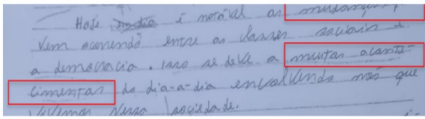 Hoje é notável as mudanças
vem acorrendo entre as classes sociais e
a democracia. isso se deve a muitas aconte-
cimentas do dia-a-dia envolvendo nós que
vivemos nessa sociedade.